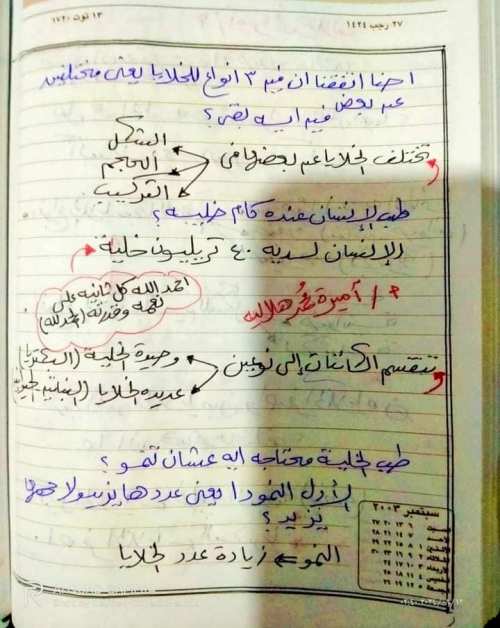 ٢٧ رجب ١٤٢٤
١٣ توت ١٧٢٠
احنا اتفقنا ان فيه ٣ انواع للخلايا يعنى مختلفين
عن بعض فى ايه بقى؟
تختلف الخلايا عن بعضها فى
الشكل
الحجم
التركيب
طب الإنسان عنده كام خليه؟
الإنسان لديه ٤٠ تريليون خلية
احمد الله كل ثانيه على
نعمه وقدرته (الحمدلله)
أميرة
تنقسم الكائنات إلى نوعين
وحيدة الخلية (البكتريا)
عديدة الخلايا (النبات
طب الخلية محتاجه ايه عشان تنمو؟
الأول النمو دا يعنى عددها يزيد ولا حجمها
يزيد؟
النمو زيادة عدد الخلايا
سبتمبر ٢٠٠٣